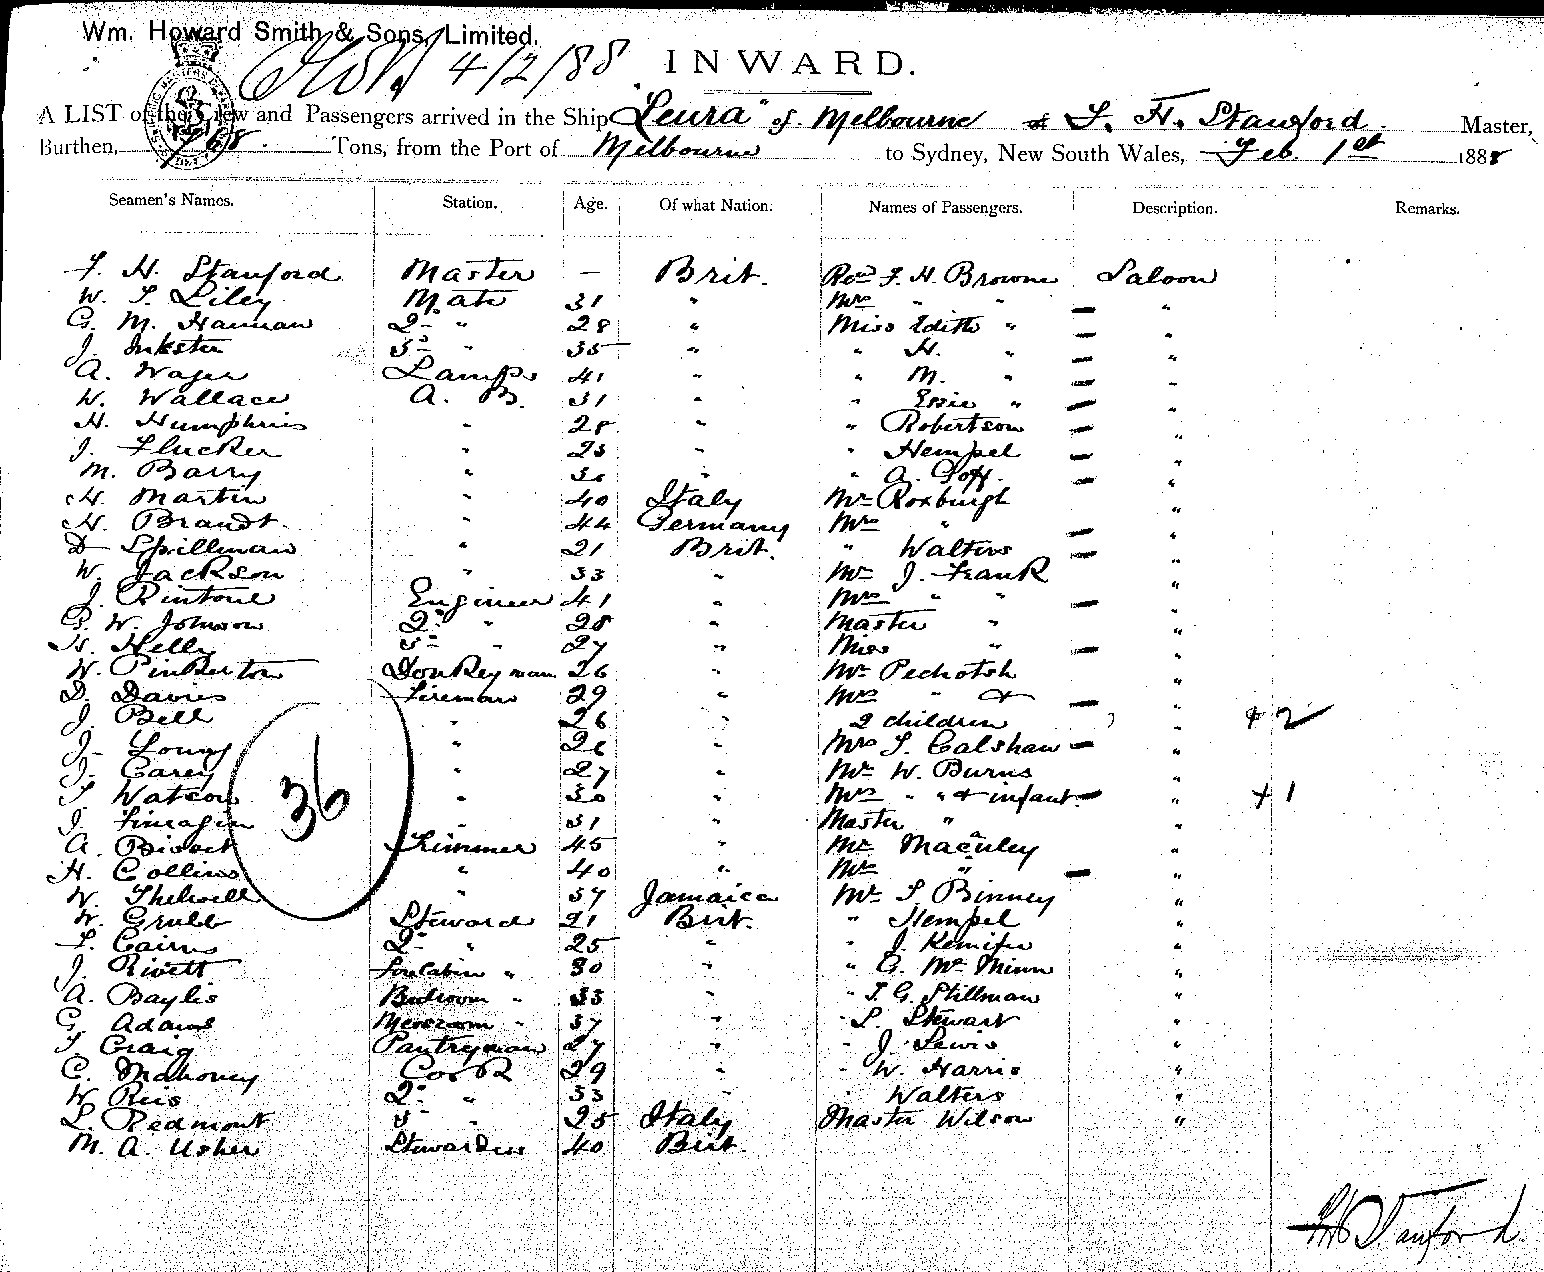 Wm. Howard Smith & Sons, Limited.
4/2/88 INWARD.
A LIST of the Crew and Passengers arrived in the Ship "Leura" of Melbourne F. H. Stanford Master,
Burthen, 768 Tons, from the Port of Melbourne to Sydney, New South Wales, Feb. 1st 1888
Seamen's Names. Station. Age. Of what Nation. Names of Passengers. Description. Remarks.
F. H. Stanford Master — Brit. Revd F. H. Browne Saloon
W. T. Liley Mate 31 " Mrs " " "
G. M. Hannan 2nd " 28 " Miss Edith " "
J. Inkster 3rd " 35 " " H. " "
A. Wager Lamps 41 " " M. " "
W. Wallace A. B. 31 " " Essie " "
H. Humphries " 28 " " Robertson "
J. Flucker " 23 " " Hempel "
M. Barry " " " A. Goff. "
H. Martin " 40 Italy Mr Roxburgh "
H. Brandt. " 44 Germany Mrs " "
D Spillman " 21 Brit. " Walters "
W. Jackson " 33 " Mr J. Frank "
J. Rintoul Engineer 41 " Mrs " " "
G. W. Johnson 2nd " 28 " Master " "
H. Helly 3rd " 27 " Miss " "
W. Pinkerton Donkeyman 26 " Mr Pechotsh "
D. Davies Fireman 29 " Mrs " & "
J. Bell " 26 " 2 children " + 2
J. Long " 26 " Mrs T. Calshaw "
J. Carey " 27 " Mr W. Burns "
T Watson " 30 " Mrs " " & infant " + 1
J. Fineagin " 31 " Master " "
A. Bisset Trimmer 45 " Mr Macauley "
H. Collins " 40 " Mrs " "
W. Thelwell " 37 Jamaica Mr T. Binney "
W. Grubb Steward 21 Brit. " Hempel "
F. Cairns 2nd " 25 " " J. "
J. Rivett Forecabin " 30 " " G. McMinn "
A. Baylis Bedroom " 33 " " T. G. Stillman "
G. Adams Messroom " 37 " " L. Stewart "
T Craig Pantryman 27 " " J. Lewis "
C. Mahoney Cook 29 " " W. Harris "
W Reis 2nd " 33 " " Walters "
L. Redmont 3rd " 25 Italy Master Wilson "
M. A. Usher Stewardess 40 Brit.
36
F H Stanford.